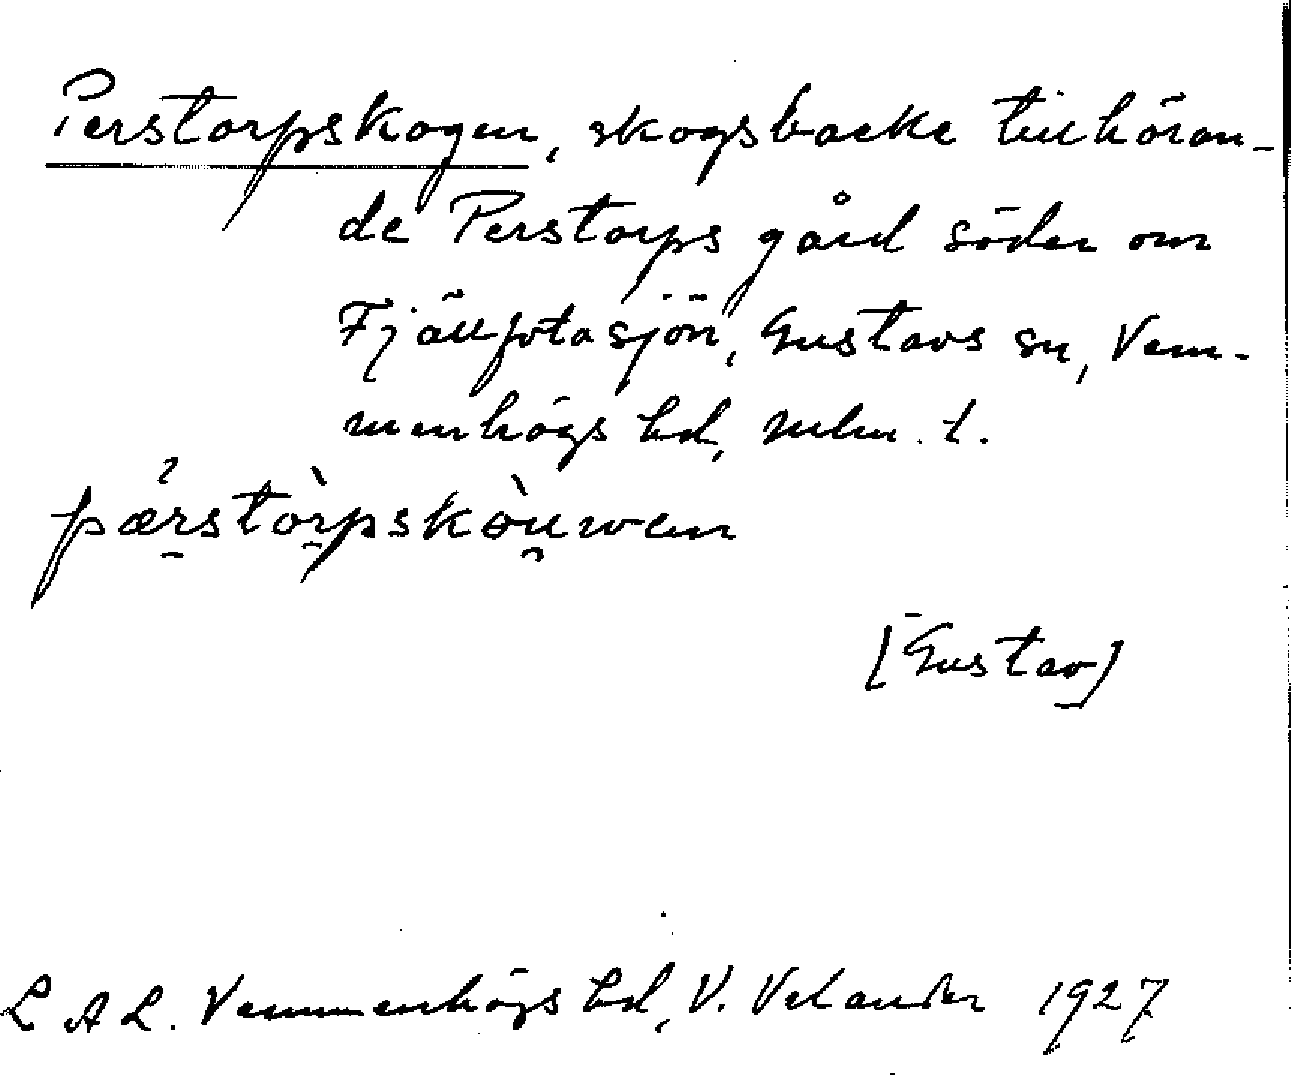 Perstorpskogen, skogsbacke tillhöran-
de Perstorps gård söder om
Fjällfotasjön, Gustavs sn, Vem-
menhögs hd, Mlm. l.
pærstòrpskòuwen
[Gustav]
L A L. Vemmenhögs hd, V. Velander 1927